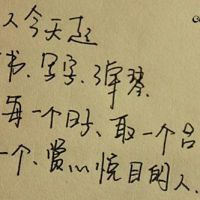 今天起
书、写字、弹琴.
每一个日子、取一个
一个、赏心悦目的人.